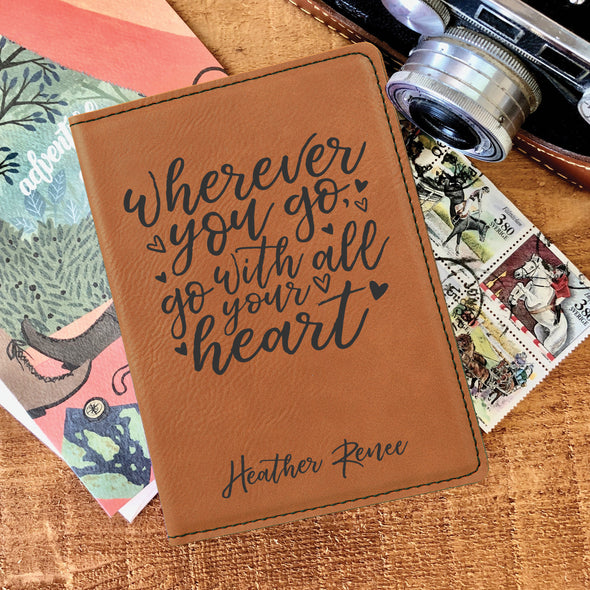 wherever
you go,
go with all
your
heart
Heather Renee
adventure
3.80
SVERIGE
3.80
SVERIGE